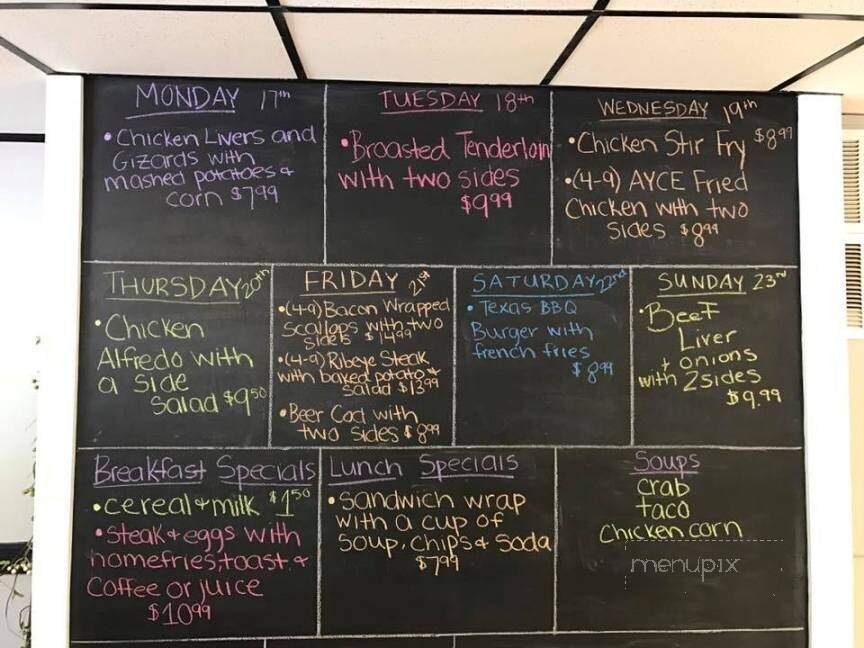 MONDAY 17th
• Chicken Livers and
Gizards with
mashed potatoes +
corn $7.99
TUESDAY 18th
• Broasted Tenderloin
with two sides
$9.99
WEDNESDAY 19th
• Chicken Stir Fry $8.99
• (4-9) AYCE Fried
Chicken with two
sides $8.99
THURSDAY 20th
• Chicken
Alfredo with
a side
Salad $9.50
FRIDAY 21st
• (4-9) Bacon Wrapped
Scallops with two
sides $14.99
• (4-9) Ribeye Steak
with baked potato +
salad $13.99
• Beer Cod with
two sides $8.99
SATURDAY 22nd
• Texas BBQ
Burger with
french fries
$8.99
SUNDAY 23rd
• Beef
Liver
+ onions
with 2 sides
$9.99
Breakfast Specials
• cereal + milk $1.50
• Steak + eggs with
homefries, toast, +
Coffee or juice
$10.99
Lunch Specials
• Sandwich wrap
with a cup of
soup, chips + soda
$7.99
Soups
crab
taco
Chicken corn
menupix